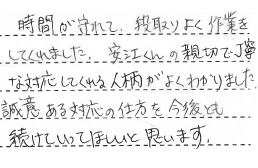 時間が守れて、段取りよく作業を
してくれました。安江くんの親切で丁寧
な対応してくれる人柄がよくわかりました
誠意ある対応の仕方を今後とも
続けていってほしいと思います。